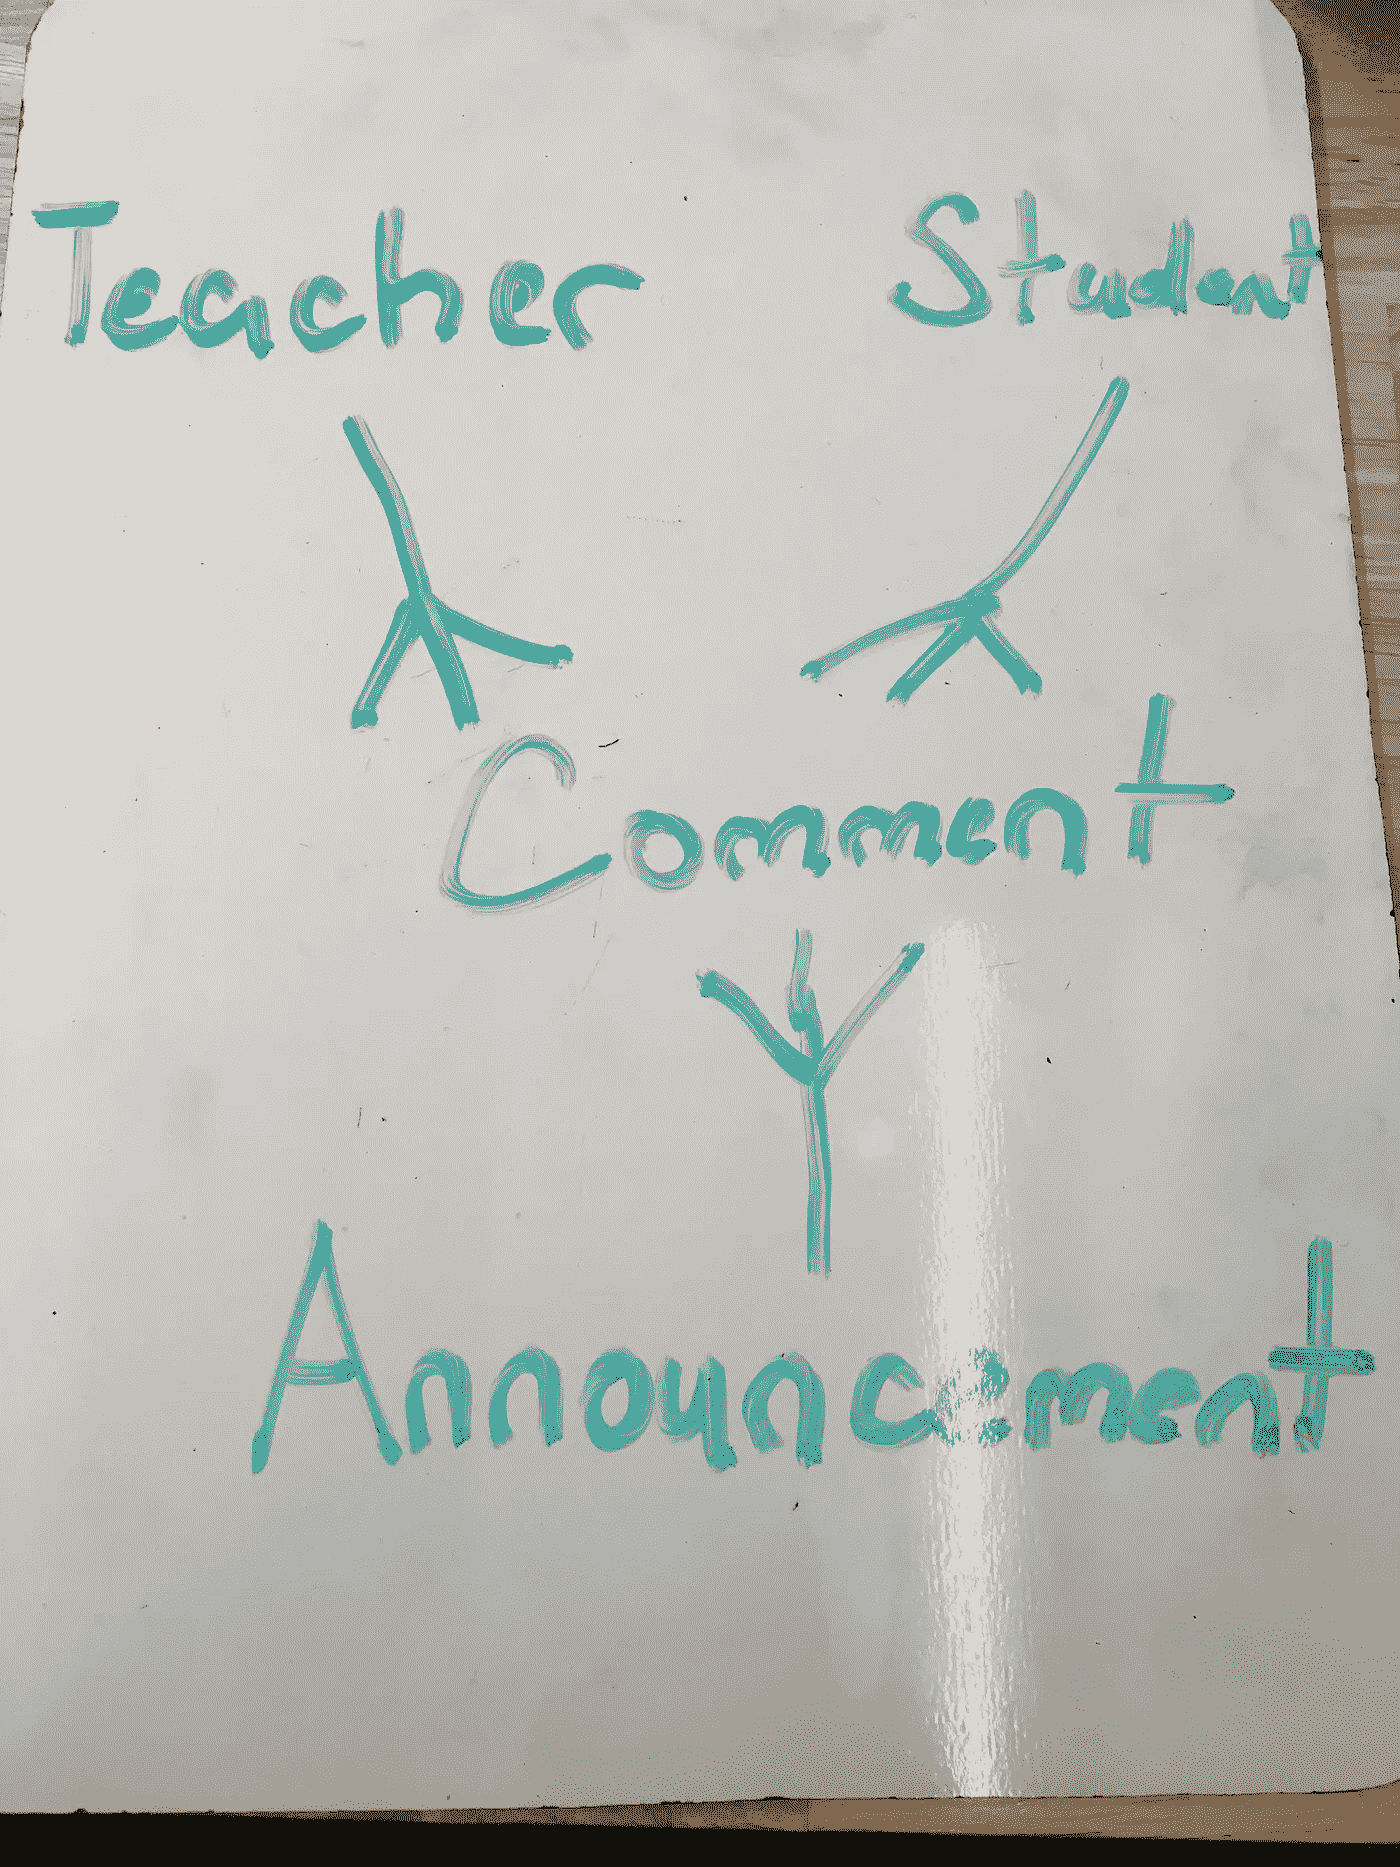 Teacher Student
Comment
Announcement